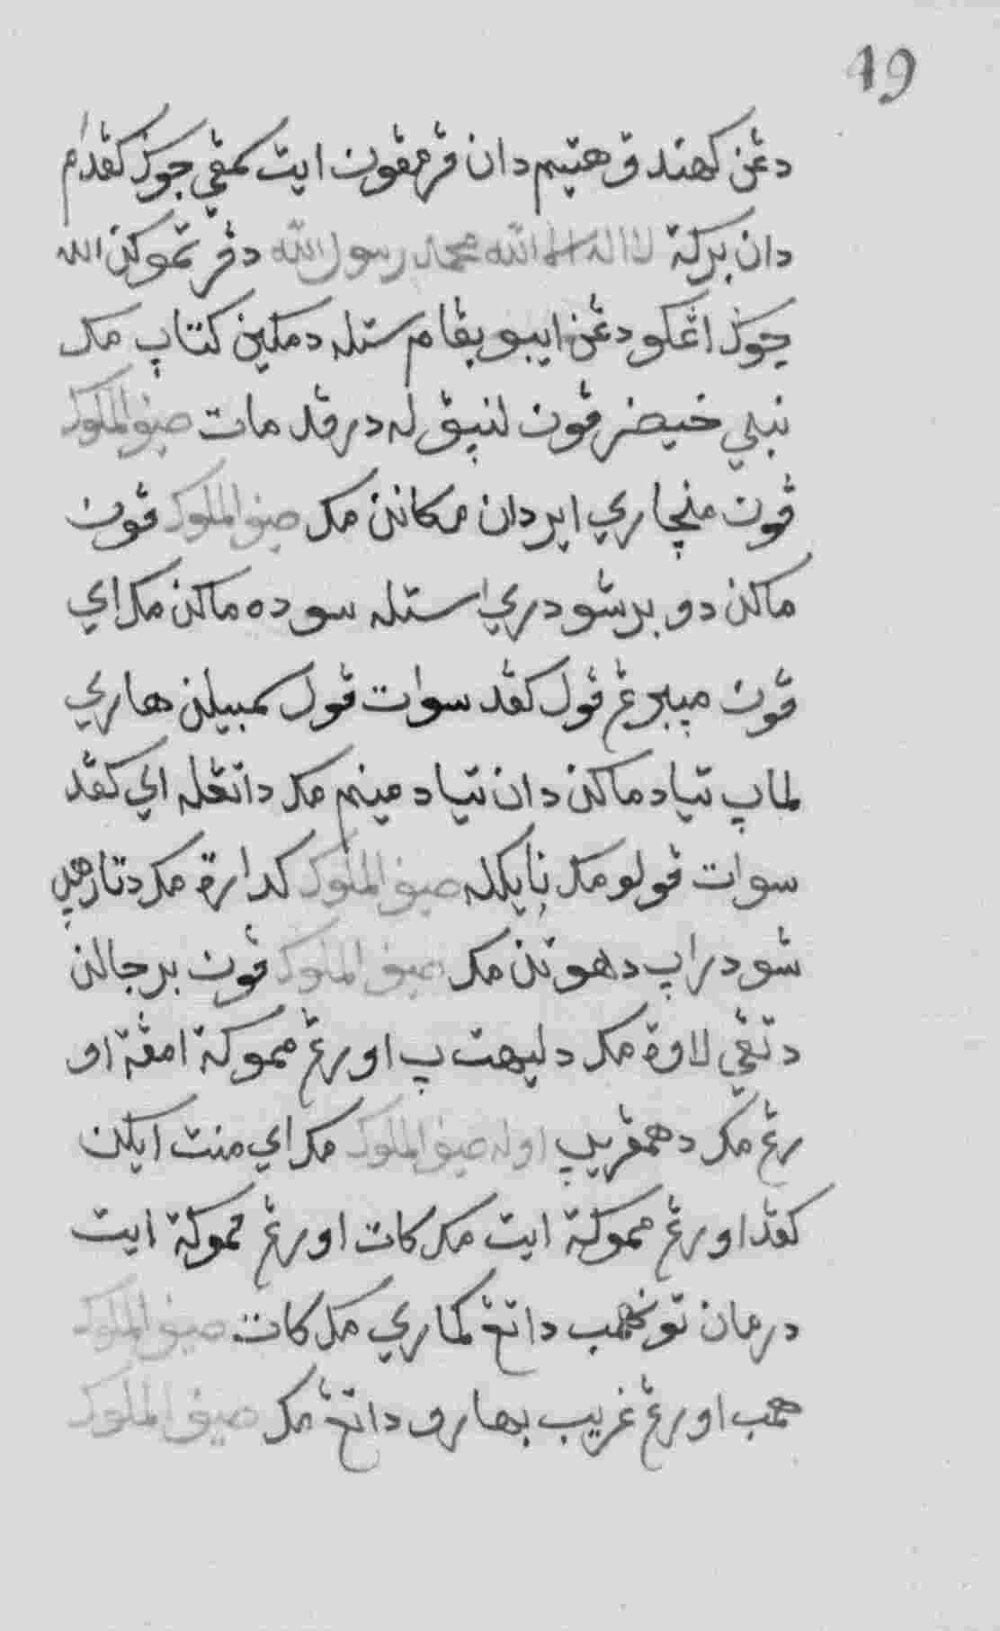 19
دڠن كهندق هتيم دان ڤرمڤون ايت كمڤي جوڬ كڤدام
دان بركة لااله الا الله محمد رسول الله دڤرتموكن الله
جوڬ اڠكو دڠن ايبو بڤام ستله دمكين كتاپ مك
نبي خيضر ڤون لنپڤله درڤد مات صيف الملوك
ڤون منچاري اير دان مكانن مك صيف الملوك ڤون
ماكن دو برشودري ستله سوده ماكن مك اي
ڤون ميبرغ ڤول كڤد سوات ڤول سمبيلن هاري
لماپ تياد ماكن دان تياد مينم مك داتڠله اي كڤد
سوات ڤولو مك نايكله صيف الملوك كدارة مك دتارهپ
شودراپ دهوتن مك صيف الملوك ڤون برجالن
دتڤي لاوة مك دليهت پ اورڠ مموكة امڤة او
رڠ مك دهمڤريپ اوله صيف الملوك مك اي منت ايكن
كڤد اورڠ مموكة ايت مك كات اورڠ مموكة ايت
درمان تونهمب داتڠ كماري مك كات صيف الملوك
همب اورڠ غريب بهارو داتڠ مك صيف الملوك